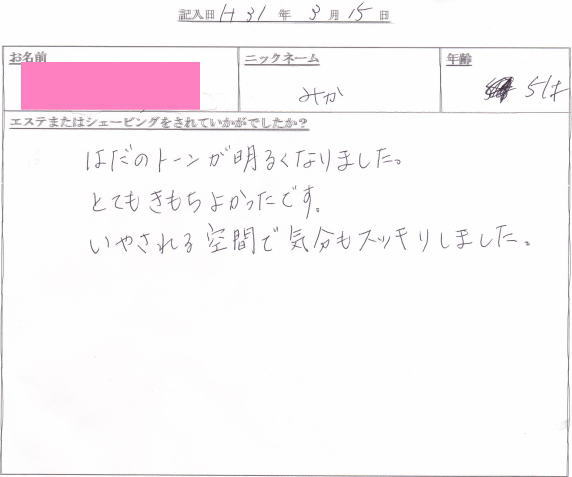 記入日 H31 年 3 月 15 日
お名前 ニックネーム 年齢
みか 51才
エステまたはシェービングをされていかがでしたか？
はだのトーンが明るくなりました。
とてもきもちよかったです。
いやされる空間で気分もスッキリしました。